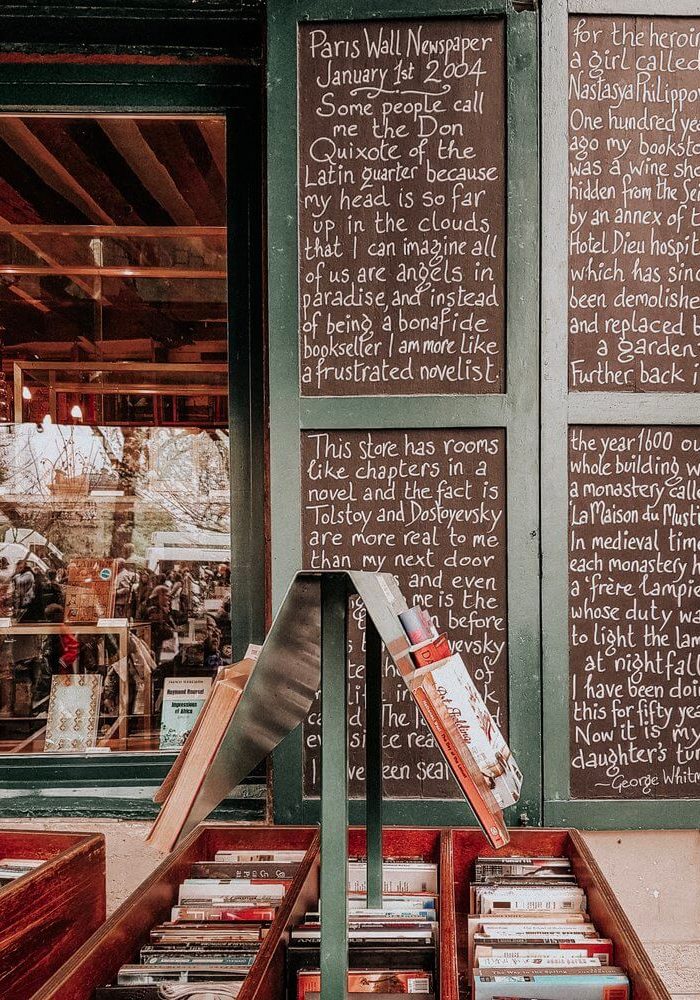 Paris Wall Newspaper
January 1st 2004
Some people call
me the Don
Quixote of the
Latin Quarter because
my head is so far
up in the clouds
that I can imagine all
of us are angels in
paradise, and instead
of being a bonafide
bookseller I am more like
a frustrated novelist.
This store has rooms
like chapters in a
novel and the fact is
Tolstoy and Dostoyevsky
are more real to me
than my next door
and even
me is the
before
of
I
for the heroin
a girl called
Nastasya Philippov
One hundred ye
ago my booksto
was a wine sho
hidden from the Sei
by an annex of t
Hotel Dieu hospit
which has sinc
been demolishe
and replaced
a garden
Further back i
the year 1600 ou
whole building w
a monastery calle
'La Maison du Musti
In medieval time
each monastery h
a 'frère lampie
whose duty wa
to light the lam
at nightfall
I have been doi
this for fifty yea
Now it is my
daughter's tur
—George Whitm
Raymond Roussel
Impressions
of Africa